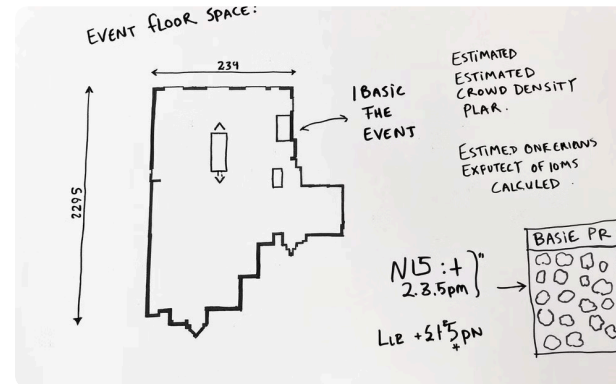 EVENT FLOOR SPACE:
234
2295
1 BASIC
THE
EVENT
ESTIMATED
ESTIMATED
CROWD DENSITY
PLAR.
ESTIMED ONKERIANS
EXFUTECT OF IOMS
CALCULED
2.3.5pm
BASIE PR